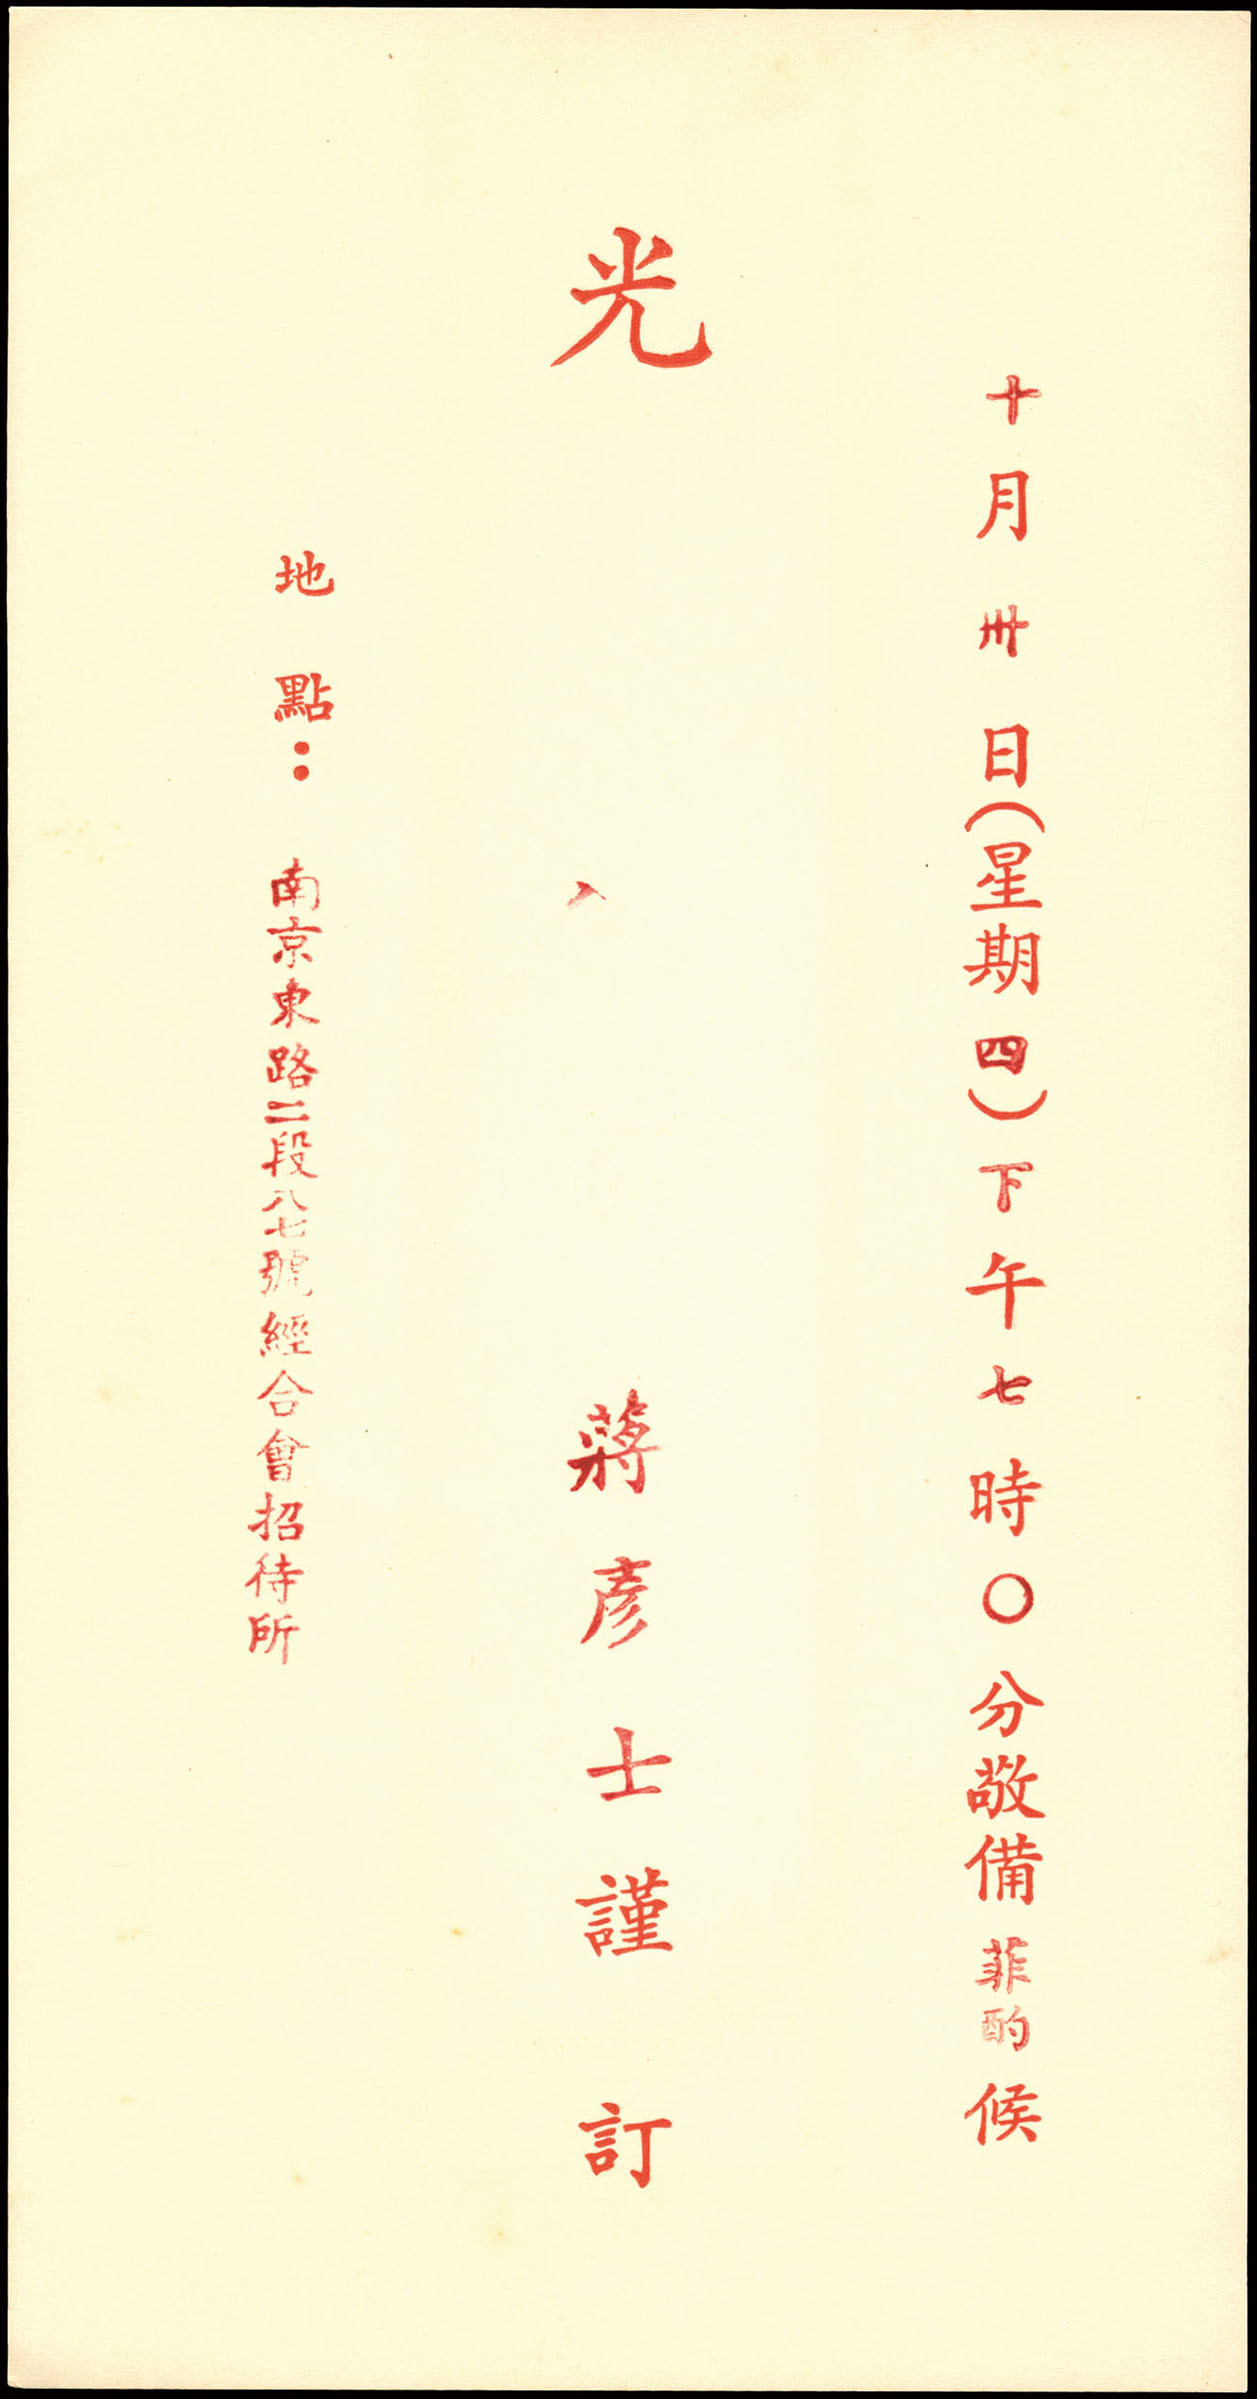 十月卅日(星期四)下午七時〇分敬備菲酌候
光
蔣彥士謹訂
地點：南京東路二段八七號經合會招待所